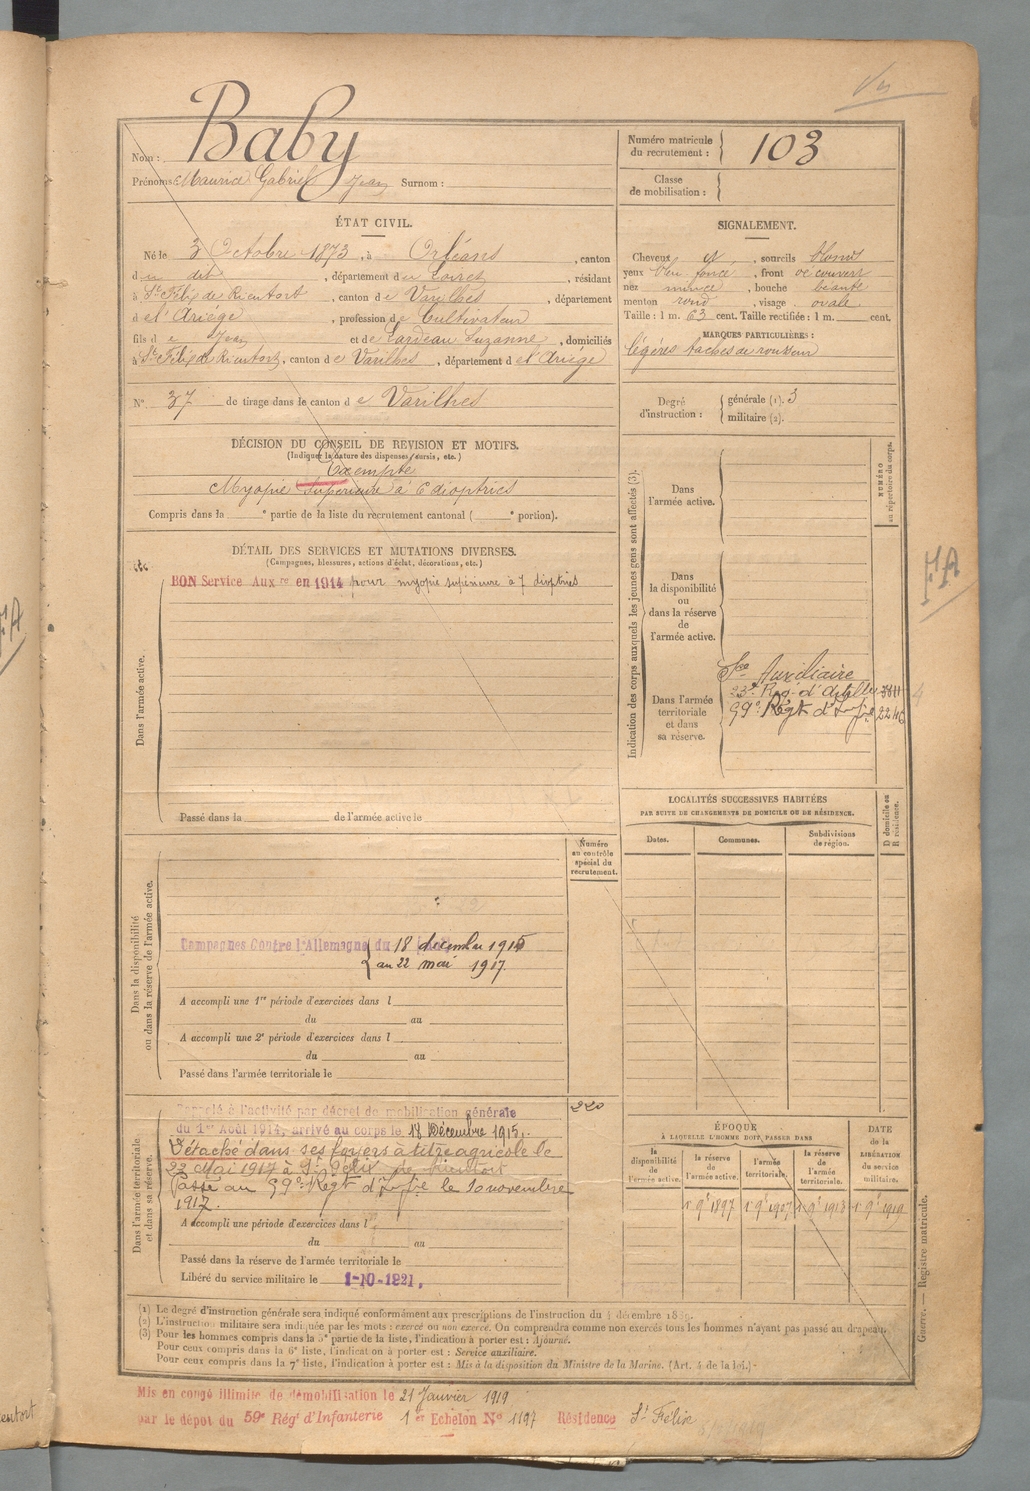 Baby
Nom :
Prénoms : Maurice Gabriel Jean Surnom :
Numéro matricule
du recrutement :
103
Classe
de mobilisation :
ÉTAT CIVIL.
Né le 3 Octobre 1873, à Orléans, canton
du dit, département du Loiret, résidant
à St Félix de Rieutort, canton de Varilhes, département
de l'Ariège, profession de Cultivateur
fils de Jean et de Lardeau Suzanne, domiciliés
à St Félix de Rieutort, canton de Varilhes, département de l'Ariège
N° 37 de tirage dans le canton de Varilhes
SIGNALEMENT.
Cheveux et, sourcils blonds
yeux bleu foncé, front découvert
nez mince, bouche béante
menton rond, visage ovale
Taille : 1 m. 63 cent. Taille rectifiée : 1 m. cent.
MARQUES PARTICULIÈRES :
légères taches de rousseur
Degré
d'instruction :
générale (1). 3
militaire (2).
DÉCISION DU CONSEIL DE REVISION ET MOTIFS.
(Indiquer la nature des dispenses, sursis, etc.)
Exempté
Myopie supérieure à 6 dioptries
Compris dans la e partie de la liste du recrutement cantonal ( e portion).
DÉTAIL DES SERVICES ET MUTATIONS DIVERSES.
(Campagnes, blessures, actions d'éclat, décorations, etc.)
BON Service Aux re en 1914 pour myopie supérieure à 7 dioptries
Dans l'armée active.
Passé dans la de l'armée active le
Indication des corps auxquels les jeunes gens sont affectés (3).
NUMÉRO
au répertoire du corps.
Dans
l'armée active.
Dans
la disponibilité
ou
dans la réserve
de
l'armée active.
Dans l'armée
territoriale
et dans
sa réserve.
Sce Auxiliaire
23e Reg. d'Artillie
99e Régt d'Infie 2246
LOCALITÉS SUCCESSIVES HABITÉES
PAR SUITE DE CHANGEMENTS DE DOMICILE OU DE RÉSIDENCE.
Dates.
Communes.
Subdivisions
de région.
D domicile ou
R résidence.
Numéro
au contrôle
spécial du
recrutement.
Dans la disponibilité
ou dans la réserve de l'armée active.
Campagnes Contre l'Allemagne du 18 décembre 1915
au 22 mai 1917.
A accompli une 1re période d'exercices dans l
du au
A accompli une 2e période d'exercices dans l
du au
Passé dans l'armée territoriale le
Dans l'armée territoriale
et dans sa réserve.
220
Rappelé à l'activité par décret de mobilisation générale
du 1er Août 1914, arrivé au corps le 18 Décembre 1915.
Détaché dans ses foyers à titre agricole le
22 Mai 1917 à St Félix de Rieutort
Passé au 99e Régt d'Infie le 10 novembre
1917.
A accompli une période d'exercices dans l
du au
Passé dans la réserve de l'armée territoriale le
Libéré du service militaire le 1-10-1921.
ÉPOQUE
À LAQUELLE L'HOMME DOIT PASSER DANS
DATE
de la
LIBÉRATION
du service
militaire.
la
disponibilité
de
l'armée active.
la réserve
de
l'armée active.
l'armée
territoriale.
la réserve
de
l'armée
territoriale.
1r 9b 1897 1r 9b 1907 1r 9b 1913 1r 9b 1919
(1) Le degré d'instruction générale sera indiqué conformément aux prescriptions de l'instruction du 4 décembre 1889.
(2) L'instruction militaire sera indiquée par les mots : exercé ou non exercé. On comprendra comme non exercés tous les hommes n'ayant pas passé au drapeau.
(3) Pour les hommes compris dans la 5e partie de la liste, l'indication à porter est : Ajourné.
Pour ceux compris dans la 6e liste, l'indication à porter est : Service auxiliaire.
Pour ceux compris dans la 7e liste, l'indication à porter est : Mis à la disposition du Ministre de la Marine. (Art. 4 de la loi.)
Guerre. — Registre matricule.
Mis en congé illimité de démobilisation le 21 Janvier 1919
par le dépot du 59e Rég d'Infanterie 1er Echelon No 1197 Résidence St Félix